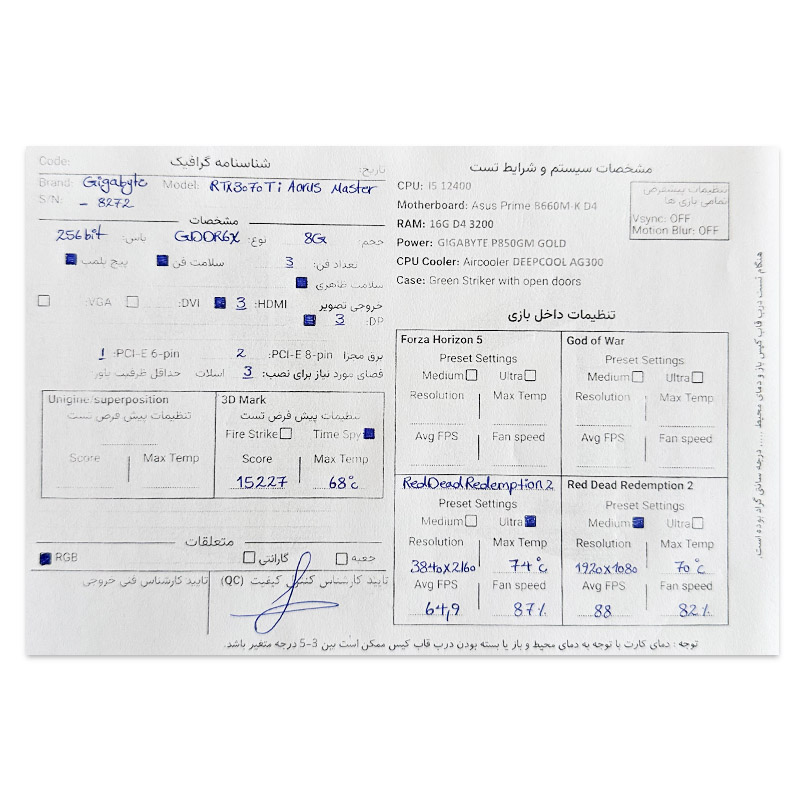 شناسنامه گرافیک
Code:
تاریخ:
Brand: Gigabyte Model: RTX3070Ti Aorus Master
S/N: - 8272
مشخصات
حجم: 8G نوع: GDDR6X باس: 256bit
تعداد فن: 3 سلامت فن پیچ پلمپ
سلامت ظاهری
خروجی تصویر HDMI: 3 DVI: VGA:
DP: 3
برق مجزا PCI-E 8-pin: 2 PCI-E 6-pin: 1
فضای مورد نیاز برای نصب: 3 اسلات حداقل ظرفیت پاور
Unigine superposition
تنظیمات پیش فرض تست
Score Max Temp
3D Mark
تنظیمات پیش فرض تست
Fire Strike Time Spy
Score Max Temp
15227 68°c
متعلقات
جعبه گارانتی RGB
تایید کارشناس کنترل کیفیت (QC) تایید کارشناس فنی خروجی
مشخصات سیستم و شرایط تست
CPU: I5 12400
Motherboard: Asus Prime B660M-K D4
RAM: 16G D4 3200
Power: GIGABYTE P850GM GOLD
CPU Cooler: Aircooler DEEPCOOL AG300
Case: Green Striker with open doors
تنظیمات پیشفرض
تمامی بازی ها
Vsync: OFF
Motion Blur: OFF
تنظیمات داخل بازی
Forza Horizon 5
Preset Settings
Medium Ultra
Resolution Max Temp
Avg FPS Fan speed
God of War
Preset Settings
Medium Ultra
Resolution Max Temp
Avg FPS Fan speed
Red Dead Redemption 2
Preset Settings
Medium Ultra
Resolution Max Temp
3840x2160 74°c
Avg FPS Fan speed
64,9 87%
Red Dead Redemption 2
Preset Settings
Medium Ultra
Resolution Max Temp
1920x1080 70°c
Avg FPS Fan speed
88 82%
توجه : دمای کارت با توجه به دمای محیط و باز یا بسته بودن درب قاب کیس ممکن است بین 3-5 درجه متغیر باشد.
هنگام تست درب قاب کیس باز و دمای محیط ..... درجه سانتی گراد بوده است.